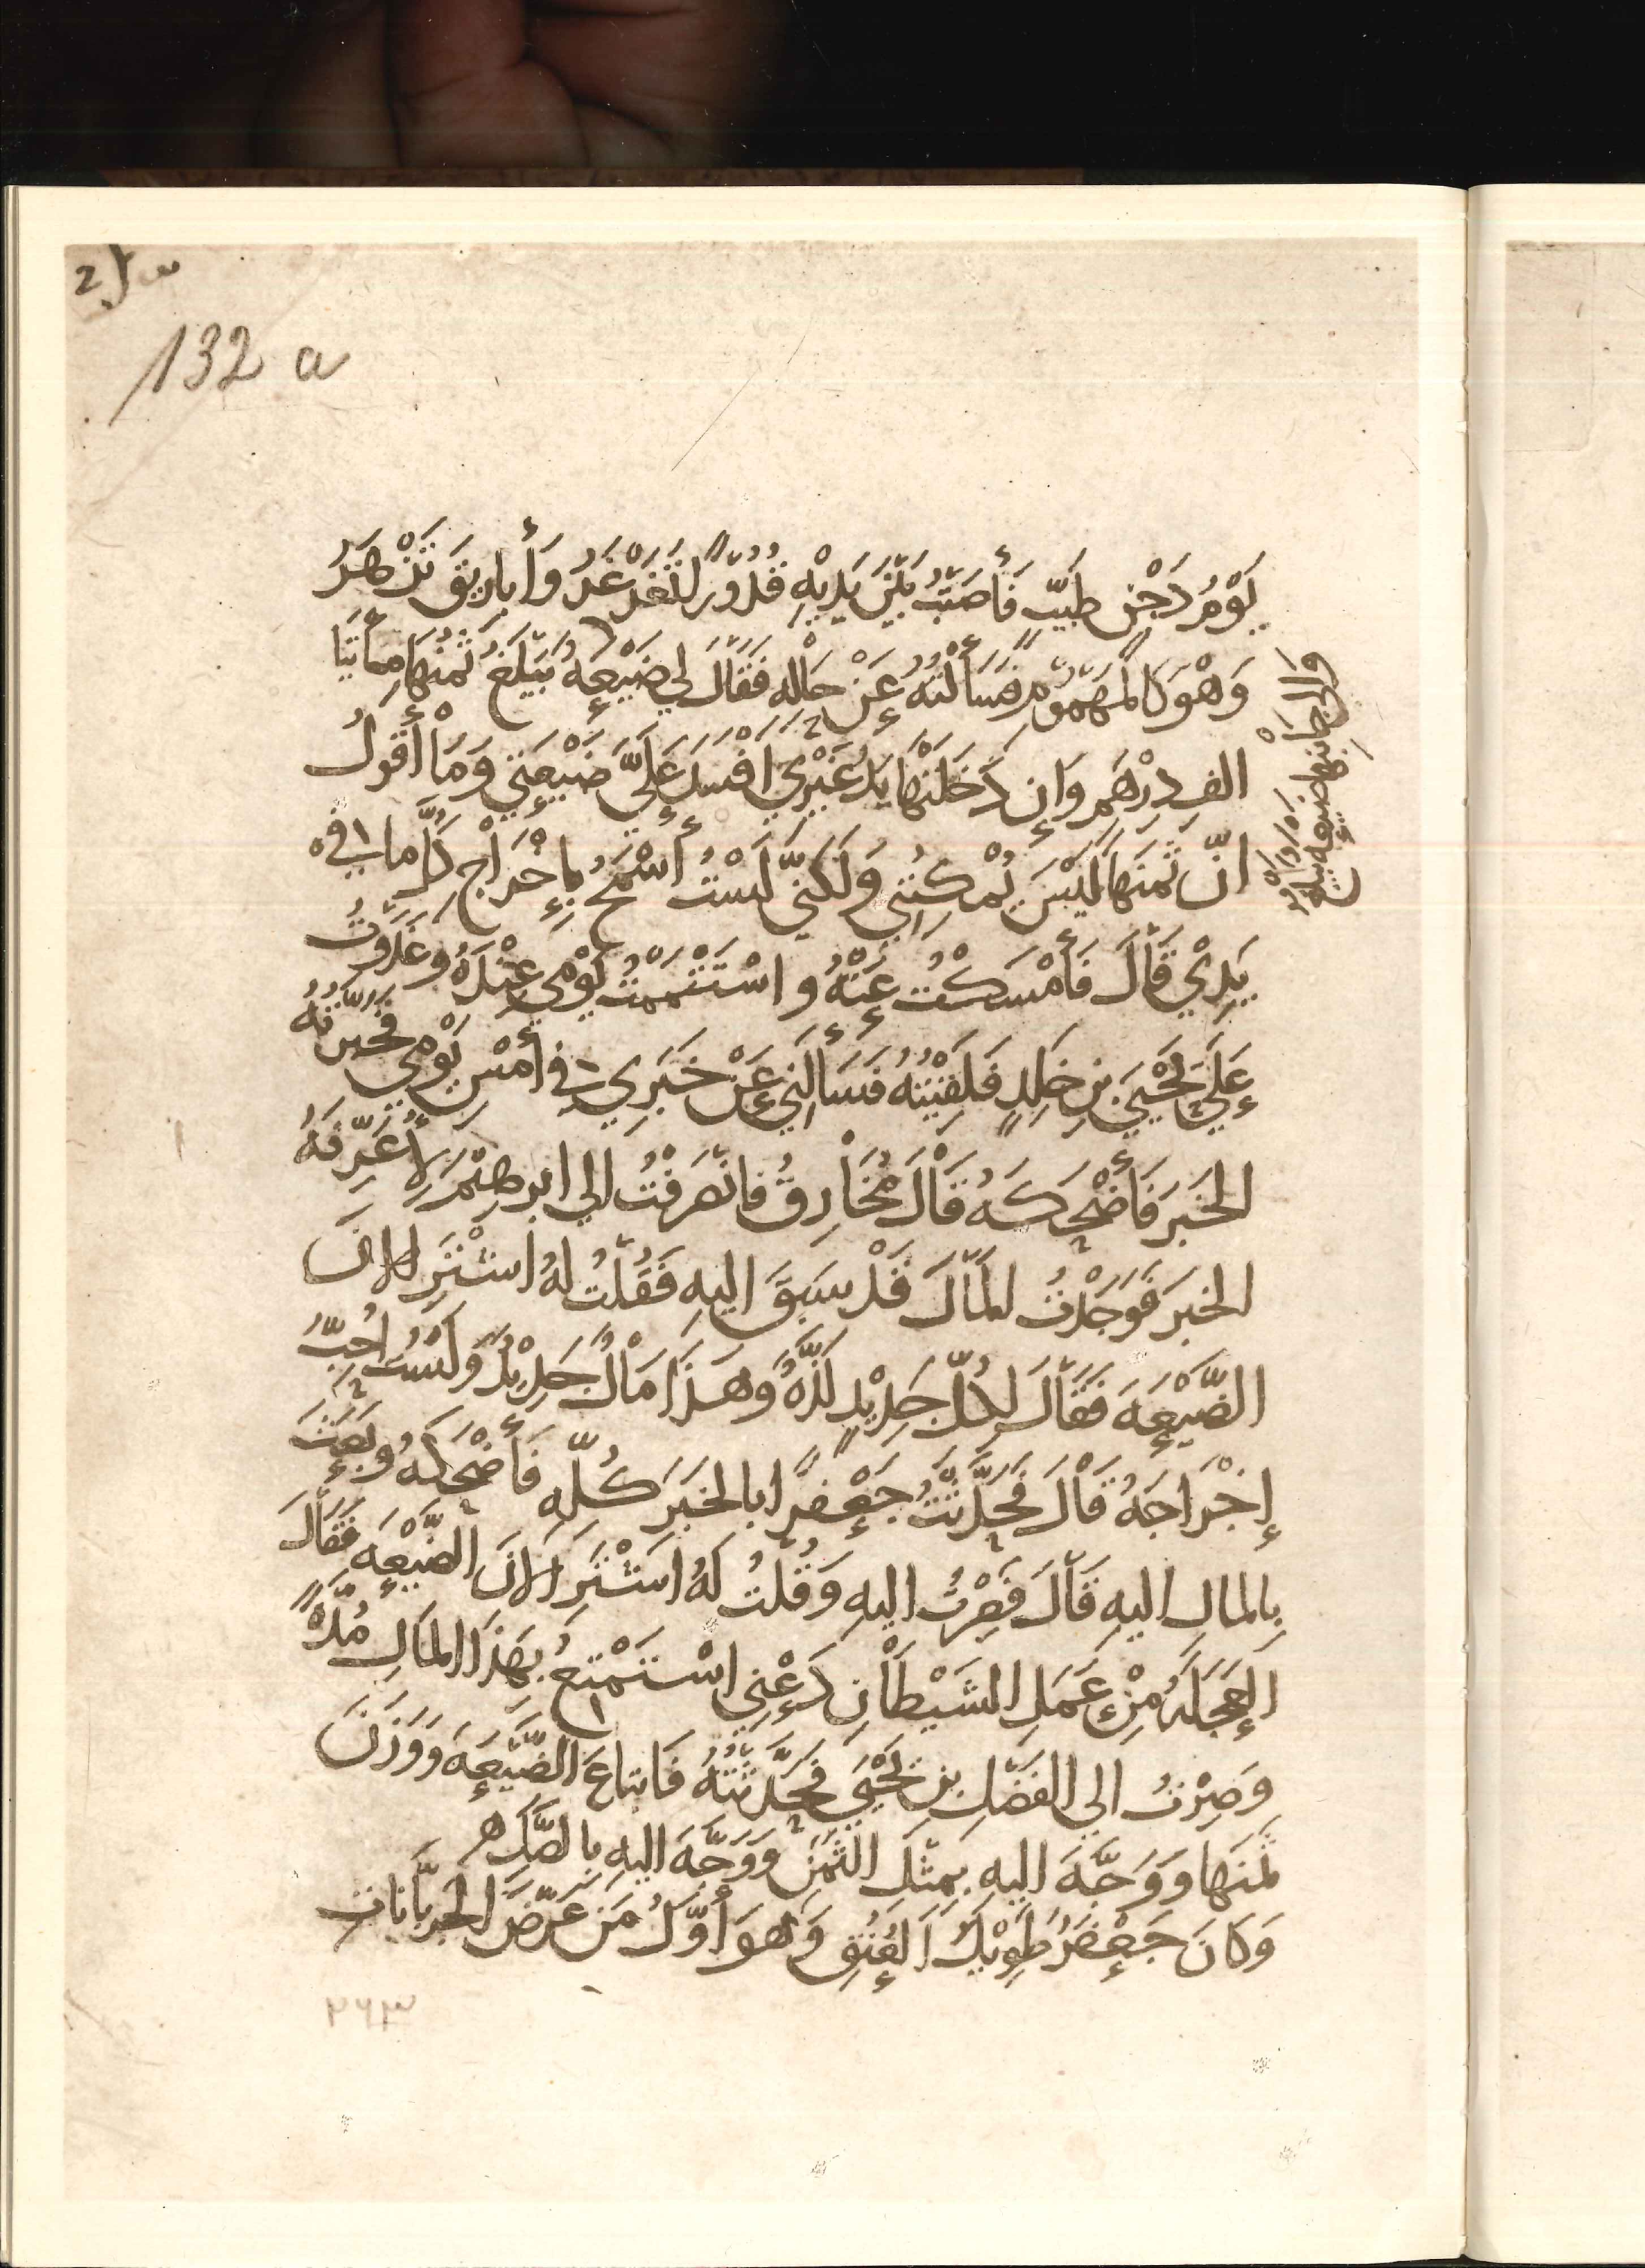 132 a
يَوْمُ دَجْنٍ طَيِّبٌ فَأَصَبْتُ بَيْنَ يَدَيْهِ قُدُوْرًا تُغَرْغَرُ وَأَبَارِيقَ تَزْهَرُ
وَهْوَ كَالْمَهْمُوْمِ فَسَأَلْتُهُ عَنْ حَالِهِ فَقَالَ لِي ضَيْعَةٌ يَبْلُغُ ثَمَنُهَا مِأَتَيْ
الفِ دِرْهَمٍ وَإِن دَخَلَتْهَا يَدُ غَيْرِي افْسَدَ عَلَيَّ ضَيْعَتِي وَمَا أَقُولُ
انّ ثَمَنَهَا لَيْسَ يُمْكِنُنِي وَلَكِنِّي لَسْتُ أَسْمَحُ بِإِخْرَاجِ كُلِّ مَا فِي
يَدِيْ قَالَ فَأَمْسَكْتُ عَنْهُ وَاسْتَتْمَمْتُ يَوْمِي عِنْدَهُ وَغَدَوْتُ
عَلَى يَحْيَى بنِ خٰلِدٍ فَلَقِيْتُهُ فَسَأَلَنِي عَنْ خَبَرِي فِي أَمْسِ يَوْمِي فَخَبَّرْتُهُ
الخَبَرَ فَأَضْحَكَهُ قَالَ مُخَارِقٌ فَانْصَرَفْتُ الى ابرهِيْمَ لِأُعَرِّفَهُ
الخبَرَ فَوَجَدْتُ المَالَ قَدْ سَبَقَ اليهِ فَقُلْتُ لَهُ اشْتَرِ الانَ
الضَّيْعَةَ فَقَالَ لِكُلِّ جَدِيْدٍ لَذَّةٌ وَهَذَا مَالٌ جَدِيْدٌ وَلَسْتُ احِبُّ
إِخْرَاجَهُ قَالَ فَحَدَّثْتُ جَعْفَرًا بالخَبَرِ كُلِّهِ فَأَضْحَكَهُ وَبَعَثَ
بِالمالِ اليهِ قَالَ فَصِرْتُ اليهِ وَقُلتُ لَهُ اشْتَرِ الانَ الضَّيْعَةَ فَقَالَ
العَجَلَةُ مِنْ عَمَلِ الشَيْطَانِ دَعْنِي اسْتَمْتِعُ بِهَذَا المَالِ مُدَّةً
وَصِرْتُ الى الفَضْلِ بنِ يَحْيَى فَحَدَّثْتُهُ فَابتَاعَ الضَّيْعَةَ وَوَزَنَ
ثَمَنَهَا وَوَجَّهَ اليهِ بِمِثْلِ الثَّمَنِ وَوَجَّهَ اليهِ بِالصَّكِّ ه
وَكَانَ جَعْفَرُ طَوِيْلَ العُنُقِ وَهُوَ أَوَّلُ مَن عَرَّضَ الجرُبَّانَاتِ
والى جانبها ضيعة
٢٦٣